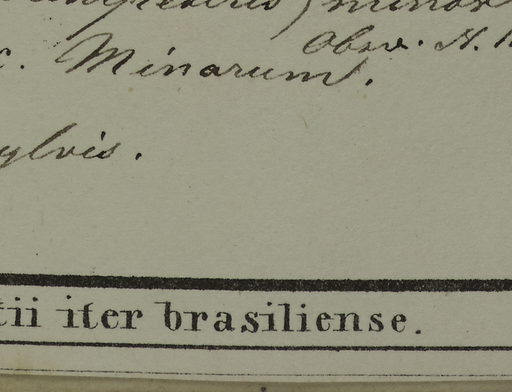 minor
Obsv. H.
c. Minarum.
ylvis.
tii iter brasiliense.